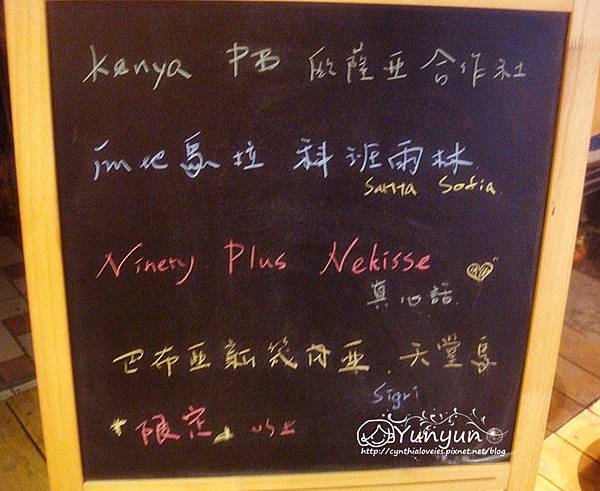 Kenya PB 欧薩亜合作社
瓜地馬拉 科班雨林
Santa Sofia
Ninety Plus Nekisse
真心話
巴布亜新幾內亜.天堂鳥
Sigri
限定
Yunyun
http://cynthialoveies.pixnet.net/blog